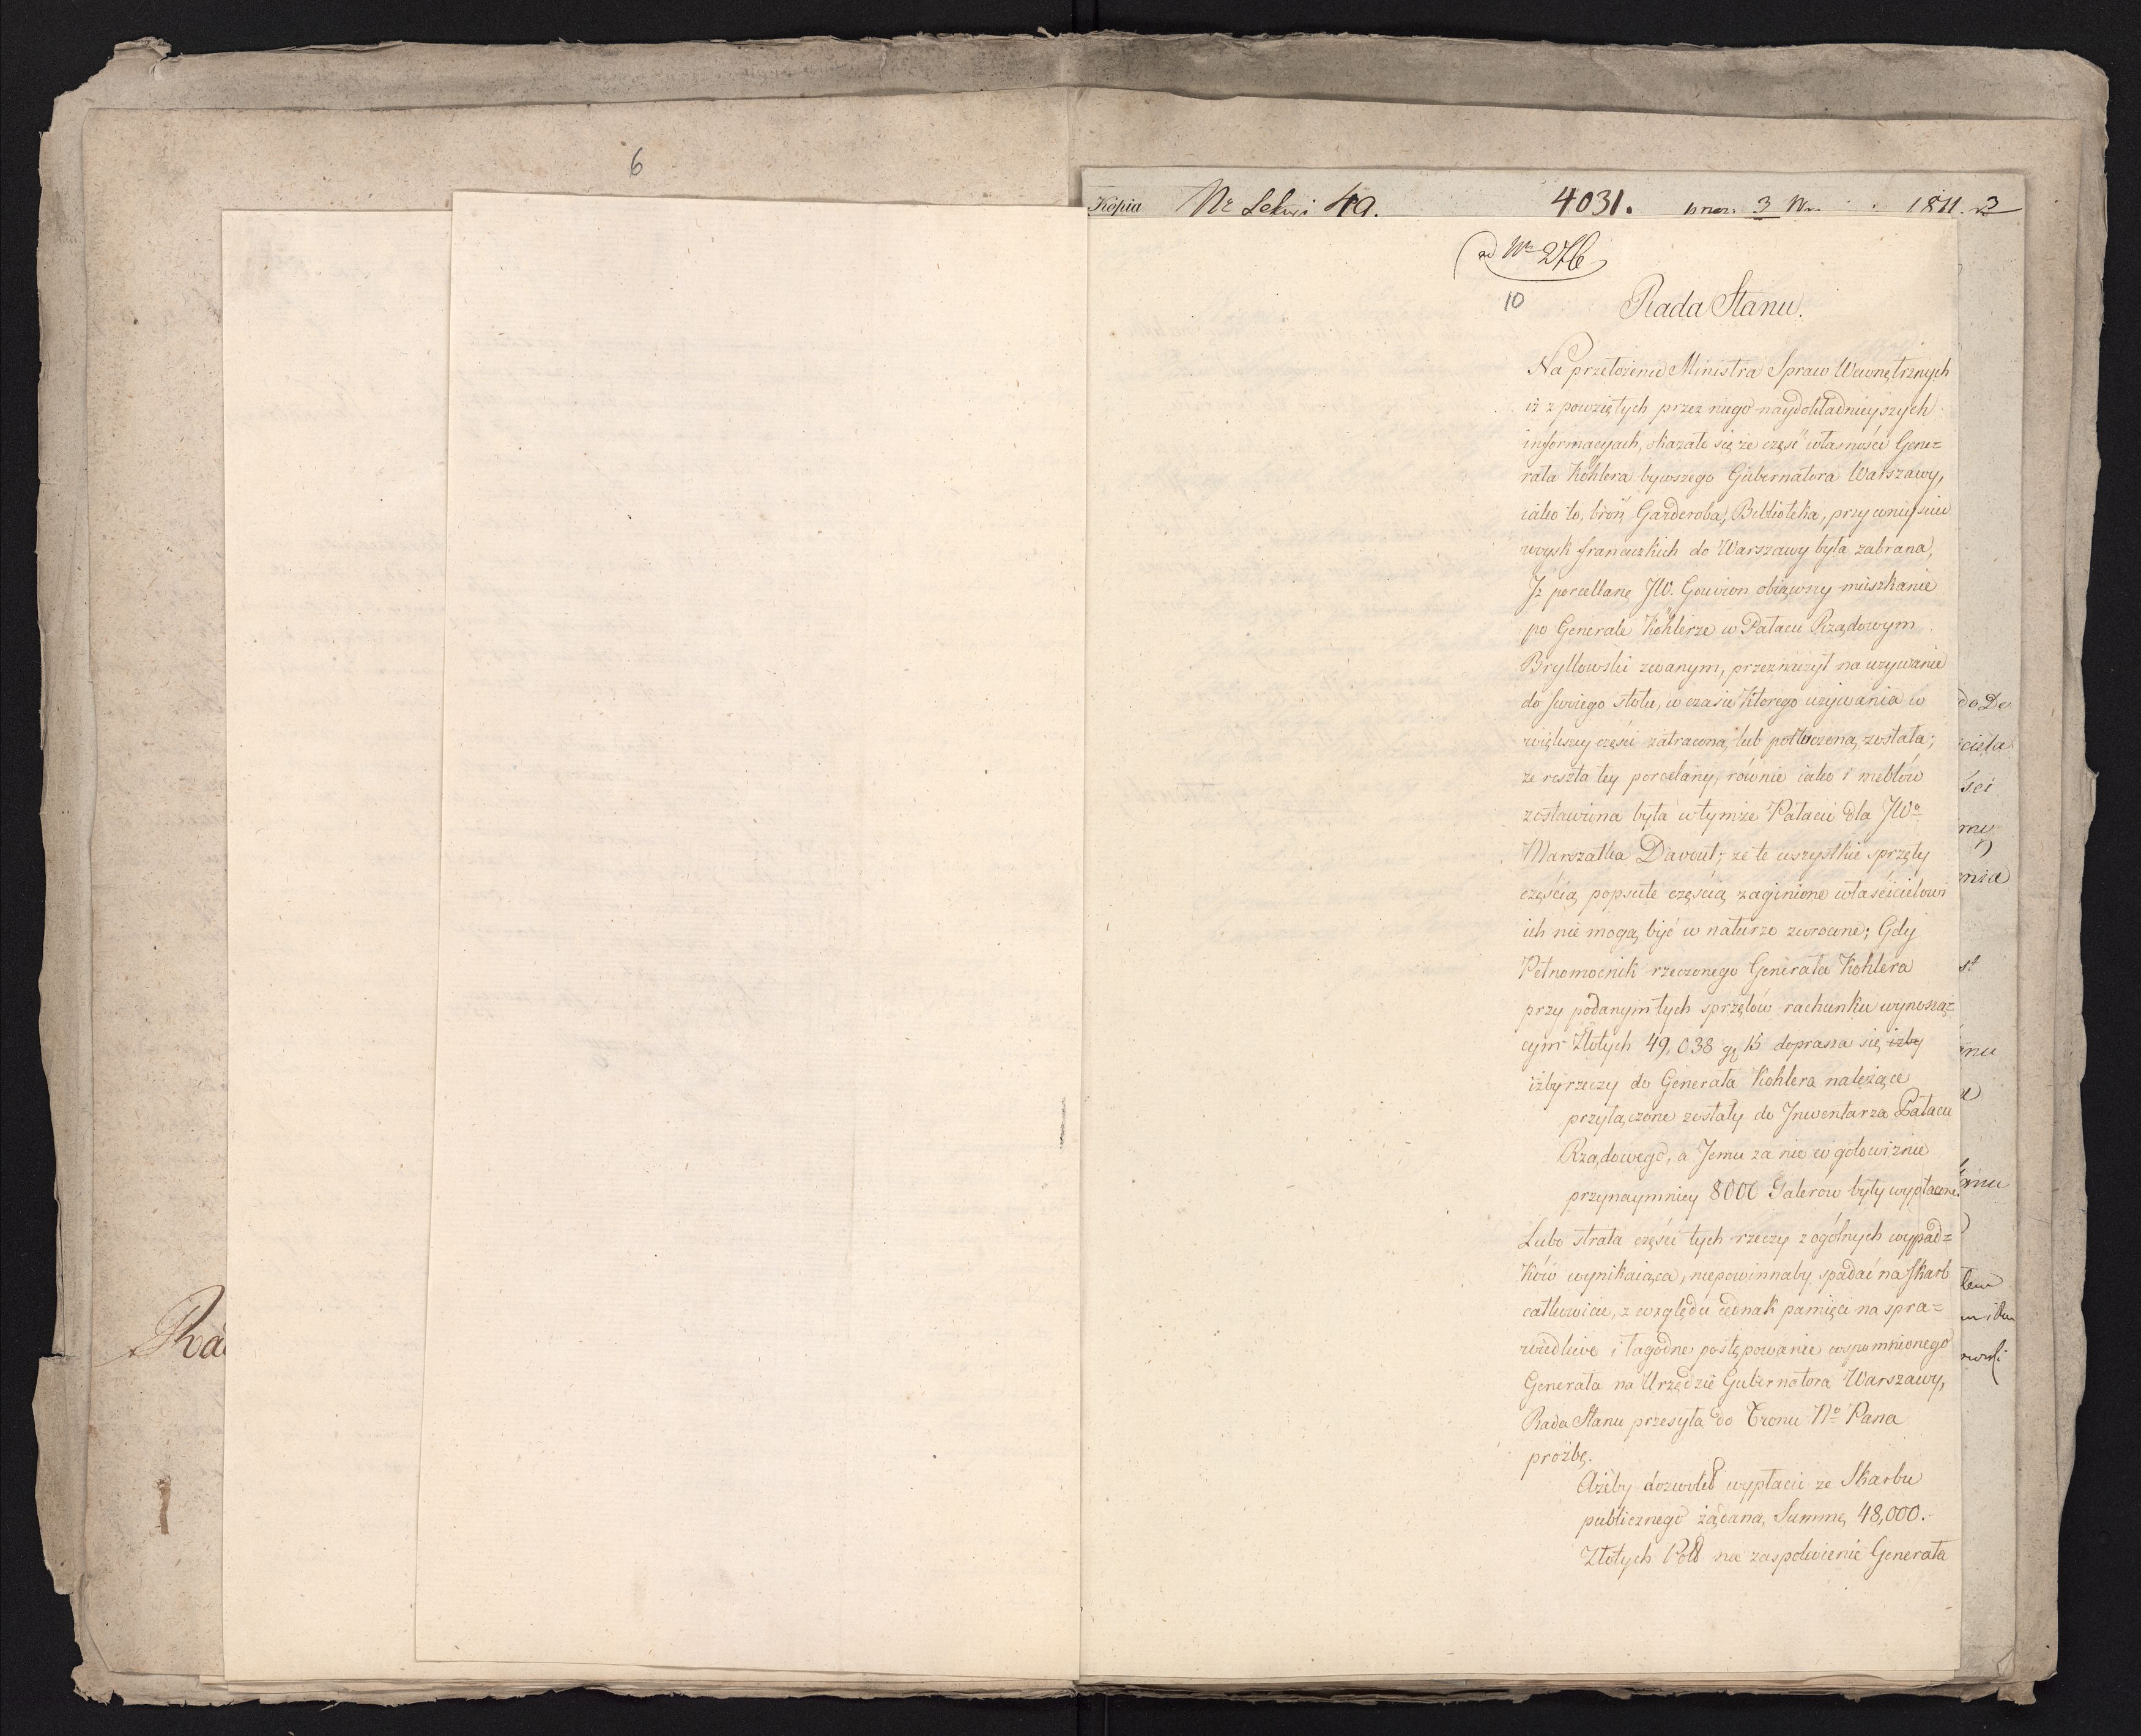 6
Kopia Nr Sekcyi 49. 4031. prez. 3 1811. 3
ad Nr 276
10
Rada Stanu.
Na przełożenie Ministra Spraw Wewnętrznych
iż z powziętych przez niego naydokładnieyszych
informacyach, okazało się że część własności Gene=
rała Köhlera bywszego Gubernatora Warszawy,
iako to, broń, Garderoba, Biblioteka, przy weniysciu
woysk francuzkich do Warszawy była zabrana,
Iż porcellanę JW. Gouvion obiąwszy mieszkanie
po Generale Köhlerze w Pałacu Rządowym
Bryllowski zwanym, przeznaczył na używanie
do swoiego stołu, w czasie ktorego używania w
większey części zatracona, lub potłuczona, została;
że reszta tey porcelany, równie iako i meblów
zostawiona była w tymże Pałacu dla JWo
Marszałka Davout; że te wszystkie sprzęty
częścią popsute częścią zaginione właścicielowi
ich nie mogą być w naturze zwrocone; Gdy
Pełnomocnik rzeczonego Generała Kohlera
przy podanym tych sprzętów rachunku wynoszą=
cym Złotych 49,038 gr 15 doprasza się iżby
iżby rzeczy do Generała Kohlera należące
przyłączone zostały do Inwentarza Pałacu
Rządowego, a Jemu za nie w gotowiznie
przynaymniey 8000 Talerów były wypłacone.
Lubo strata części tych rzeczy z ogólnych wypad=
ków wynikaiąca, niepowinnaby spadać na Skarb
całkowicie, z względu iednak pamięci na spra=
wiedliwe i łagodne postępowanie wspomnionego
Generała na Urzędzie Gubernatora Warszawy,
Rada Stanu przesyła do Tronu No Pana
proźbę.
Ażeby dozwolił wypłacić ze Skarbu
publicznego żądaną Summę 48,000.
Złotych Pol na zaspokoienie Generała